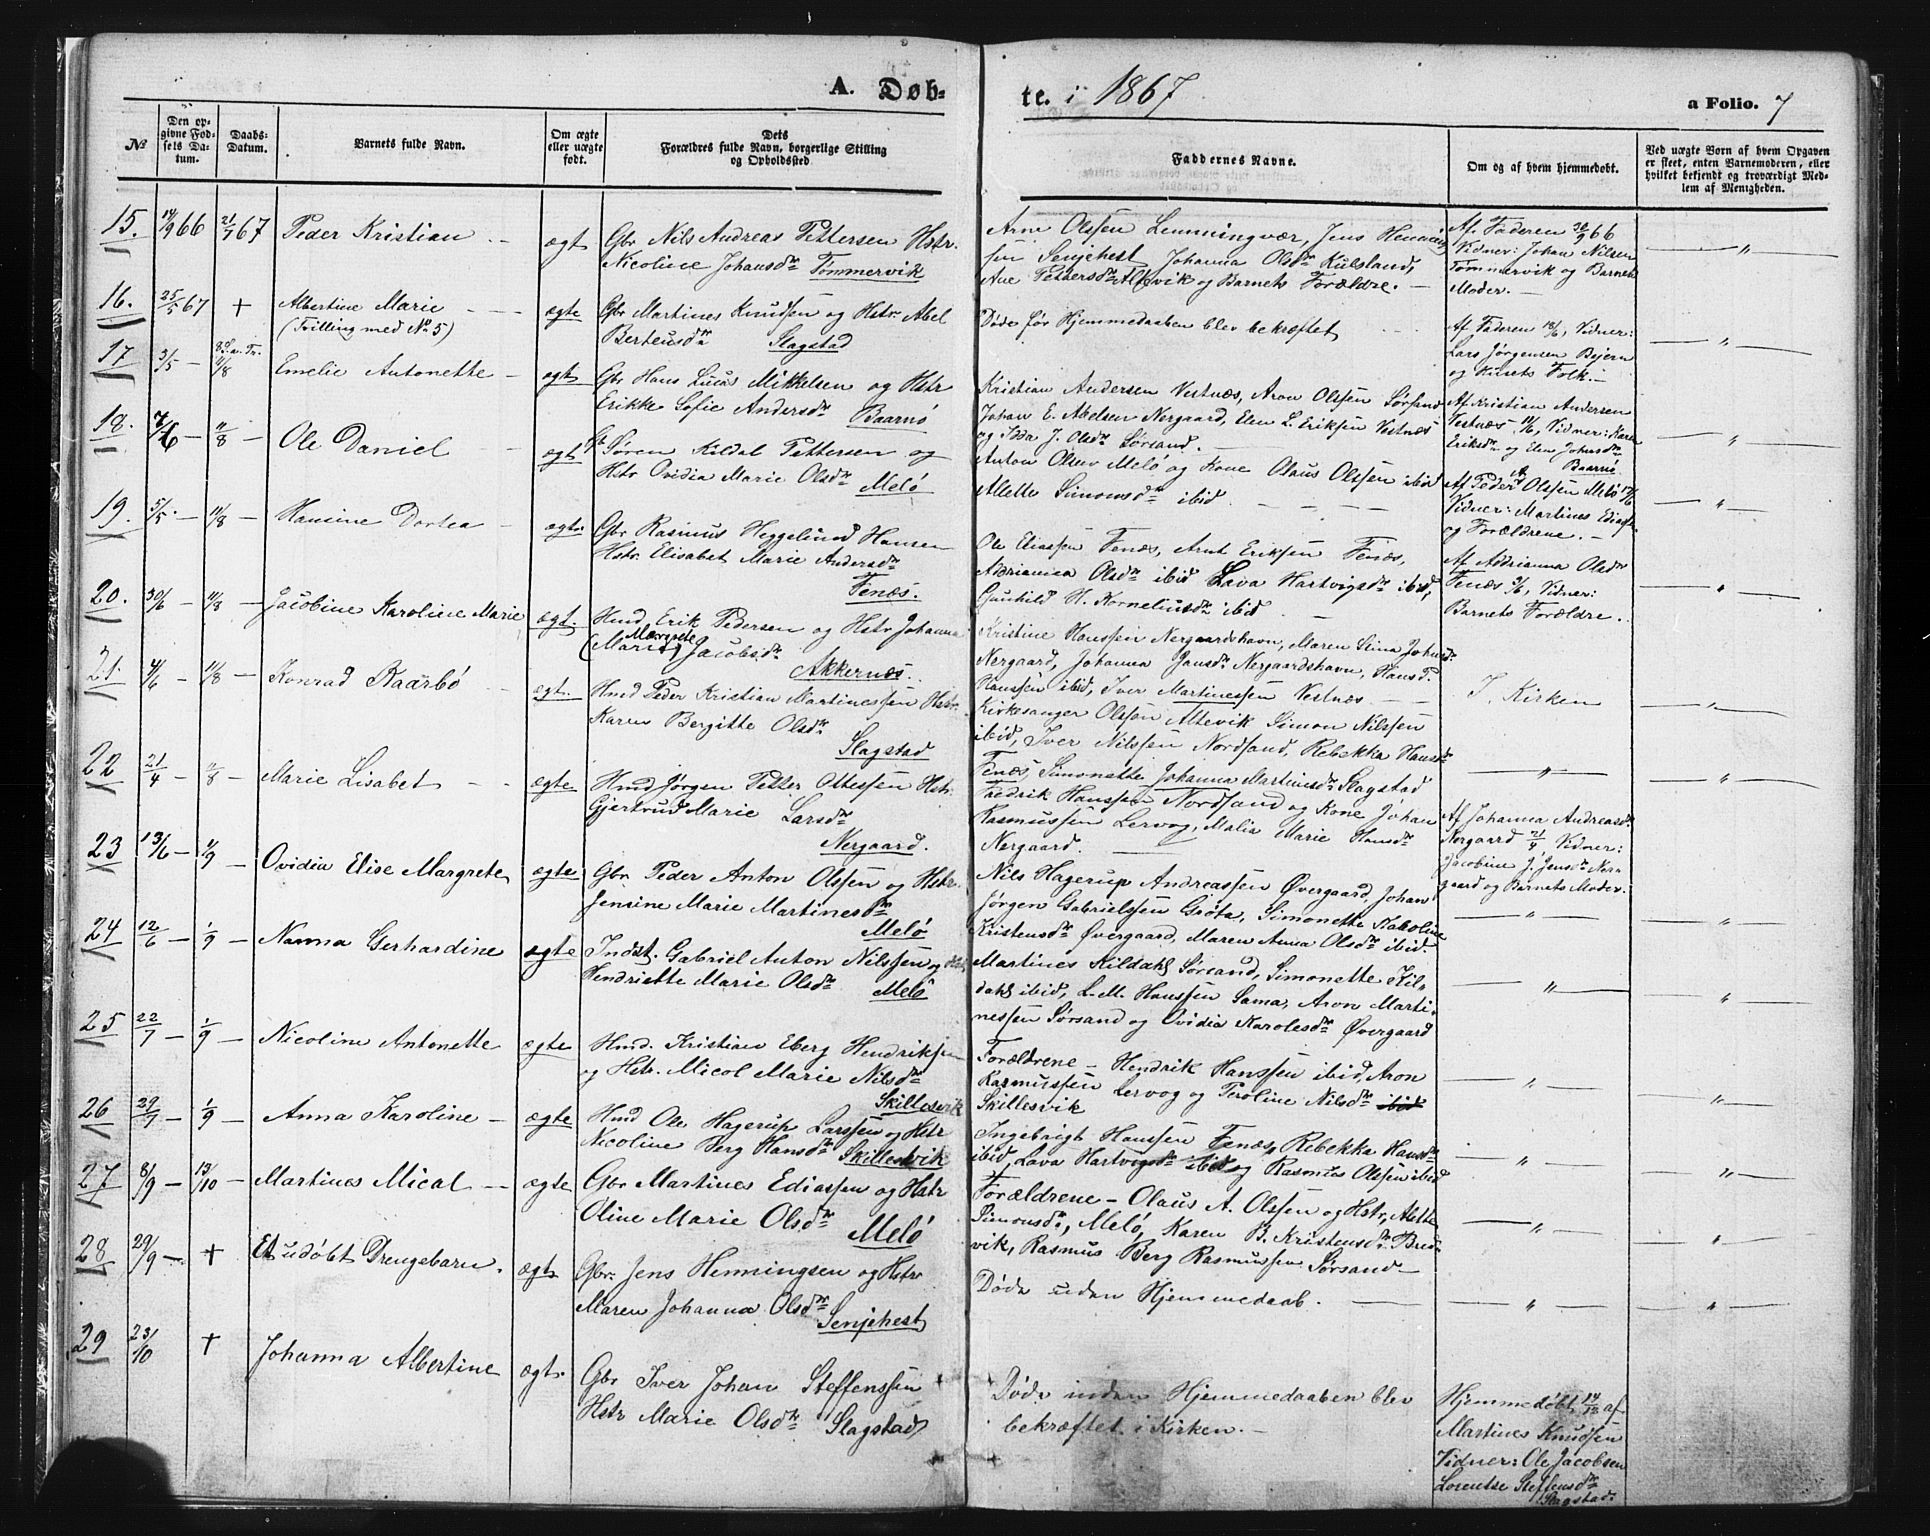 A. Døb-
te. i 1867
a Folio. 7
№
Den opgivne Fødsels Datum.
Daabs-Datum.
Barnets fulde Navn.
Om ægte eller uægte født.
Dets Forældres fulde Navn, borgerlige Stilling og Opholdssted.
Faddernes Navne.
Om og af hvem hjemmedøbt.
Ved uægte Børn af hvem Opgaven er skeet, enten Barnemoderen, eller hvilket bekjendt og troværdigt Medlem af Menigheden.
15. 14/9 66 21/7 67 Peder Kristian ægt Gbr Nils Andreas Pettersen Hstr.
Nicoline Johansdr Tømmervik
Arne Olssen Lemmingvær, Jens Henning
sen Senjehest Johanna Olsdr Kulsland,
Ane Pettersdr Altevik og Barnets Forældre. -
Af Faderen 30/9 66
Vidner: Johan Nilsen
Tømmervik og Barnets
Moder. -
16. 25/5 67 + Albertine Marie
(Tvilling med No 5)
ægte Gbr Martines Knudsen og Hstr Abel
Berteusdr Slagstad
Døde før Hjemmedaaben blev bekræftet
Af Faderen 18/6, Vidner:
Lars Jørgensen Bejern
og Husets Folk. -
17 3/5 - 8 S. a. Tr. 11/8 Emelie Antonette - ægt Gbr Hans Lucas Mikkelsen og Hstr
Erikke Sofie Andersdr Baarnø
Kristian Andersen Vestnæs, Aron Olssen Sørsand
Johan E. Abelsen Nergaard, Elen L. Eriksen Vestnæs
og Ida J. Olsdr Sørsand. -
Af Kristian Andersen
Vestnæs 11/6, Vidner: Karen
Eriksdr og Elen Johnsdr
Baarnø.
18. 7/6 - 11/8 - Ole Daniel ægt Gbr Søren Kildal Pettersen og
Hstr Ovidia Marie Olsdr Melø
Anton Olsen Melø og Kone Olaus Olssen ibid
Alette Simonsdr ibid.
Af Peder A. Olssen Melø 12/6
Vidner: Martines Ediass.
og Forældrene. -
19. 5/5 - 11/8 - Hansine Dortea - ægt. Gbr Rasmus Heggelund Hansen
Hstr. Elisabet Marie Andersdr
Fenæs.
Ole Eliassen Fenæs, Arnt Eriksen Fenæs,
Adrianna Olsdr ibid Lava Hartvigsdr ibid,
Gunhild H. Korneliusdr ibid
Af Adrianna Olsdr
Fenæs 9/6, Vidner:
Barnets Forældre.
20. 30/6 - 11/8 - Jacobine Karoline Marie ægt. Hmd Erik Pedersen og Hstr Johanna
(Marie) Margrete Jacobsdr
Akkernæs.
Kristine Hanssen Nergaardshavn, Maren Stina Johnsdr
Nergaard, Johanna Jansdr Nergaardshavn, Hans P.
Hanssen ibid, Iver Martinessen Vestnæs
I. Kirken
21. 4/6 - 11/8 - Konrad Kaarbø ægt. Hmd Peder Kristian Martinessen Hstr.
Karen Bergitte Olsdr
Slagstad
Kirkesanger Olssen Altevik Simon Nilssen
ibid, Iver Nilssen Nordsand, Rebekka Hansdr
Fenæs, Simonette Johanna Martinusdr Slagstad
22 21/4 - 11/8 - Marie Lisabet - - ægte Hmd Jørgen Petter Ottessen Hstr.
Gjertrud Marie Larsdr
Nergaard.
Fredrik Hanssen Nordsand og Kone Johan
Rasmussen Lervog, Malia Marie Hansdr
Nergaard.
Af Johanna Andreasdr.
Nergaard 21/4 Vidner:
Jacobine J. Jensdr Ner-
gaard og Barnets Moder.
23 13/6 - 1/9 - Ovidia Elise Margrete ægte Gbr. Peder Anton Olssen og Hstr.
Jensine Marie Martinesdr
Melø
Nils Hagerup Andreassen Øvergaard, Johan
Jørgen Gabrielssen Grøta, Simonette Karoline
Kristensdr Øvergaard, Maren Anna Olsdr ibid.
24 12/6 - 1/9 - Nanna Gerhardine ægte Indst. Gabriel Anton Nilssen og Hstr.
Hendriette Marie Olsdr Melø
Martines Kildahl Sørsand, Simonette Kil-
dahl ibid, L. M. Hanssen Sama, Aron Marti-
nessen Sørsand og Ovidia Karolesdr Øvergaard
25 22/7 - 1/9 - Nicoline Antonette ægte Hmd. Kristian Eberg Hendriksen
og Hstr. Micol Marie Nilsdr
Skillesvik
Forældrene - Hendrik Hanssen ibid, Aron
Rasmussen Lervog og Peroline Nilsdr ibid
Skillesvik
26 29/7 - 1/9 - Anna Karoline - ægte Hmd Ole Hagerup Larssen og Hstr
Nicoline Berg Hansdr Skillesvik
Ingebrigt Hanssen Fenæs, Rebekka Hansdr
ibid, Lava Hartvigsdr ibid og Rasmus Olssen ibid
27 8/9 - 13/10 - Martines Mical - ægte Gbr Martines Ediassen og Hstr
Oline Marie Olsdr Melø
Forældrene - Olaus A. Olssen og Hstr, Alette
Simonsdr, Melø, Karen B. Kristensdr Bred-
vik, Rasmus Berg Rasmussen Sørsand -
28 29/9 - + Et udøbt Drengebarn. ægt. Gbr. Jens Henningsen og Hstr
Maren Johanna Olsdr Senjehest
Døde uden Hjemmedaab.
29 23/10 + Johanna Albertine ægt. Gbr Iver Johan Steffenssen
Hstr Marie Olsdr Slagstad
Døde inden Hjemmedaaben blev
bekræftet i Kirken. -
Hjemmedøbt 14/12 af
Martines Knudsen
Vidner: Ole Jacobsen
Lorentse Steffensdr
Slagstad.